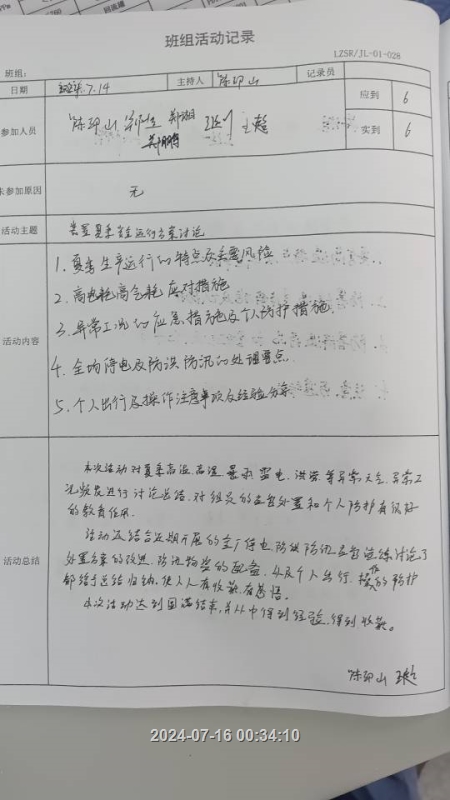 班组活动记录
LZSR/JL-01-028
班组:
日期 7.14 主持人 陈卫山 记录员
应到 6
参加人员 陈卫山
实到 6
未参加原因 无
活动主题 装置夏季安全运行方案讨论
活动内容
1. 夏季生产运行的特点及主要风险
2. 高电耗高气耗应对措施
3. 异常工况的应急措施及个人防护措施
4. 全场停电及防洪防汛的处理要点
5. 个人出行及操作注意事项及经验分享
活动总结
本次活动对夏季高温、高湿、暴雨、雷电、洪涝等异常天气、异常工
况频发进行讨论总结,对组员的应急处置和个人防护有很好
的教育作用。
活动又结合近期开展的全厂停电、防洪防汛应急演练讨论了
处置方案的改进、防汛物资的配备、以及个人出行、操作的防护
都给予总结归纳,使人人有收获,有感悟。
本次活动达到圆满结束,并从中得到经验,得到收获。
陈卫山
2024-07-16 00:34:10